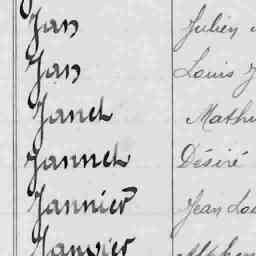 Jan Julien
Jan Louis
Janet
Jannet Désiré
Jannier Jean
Janvier